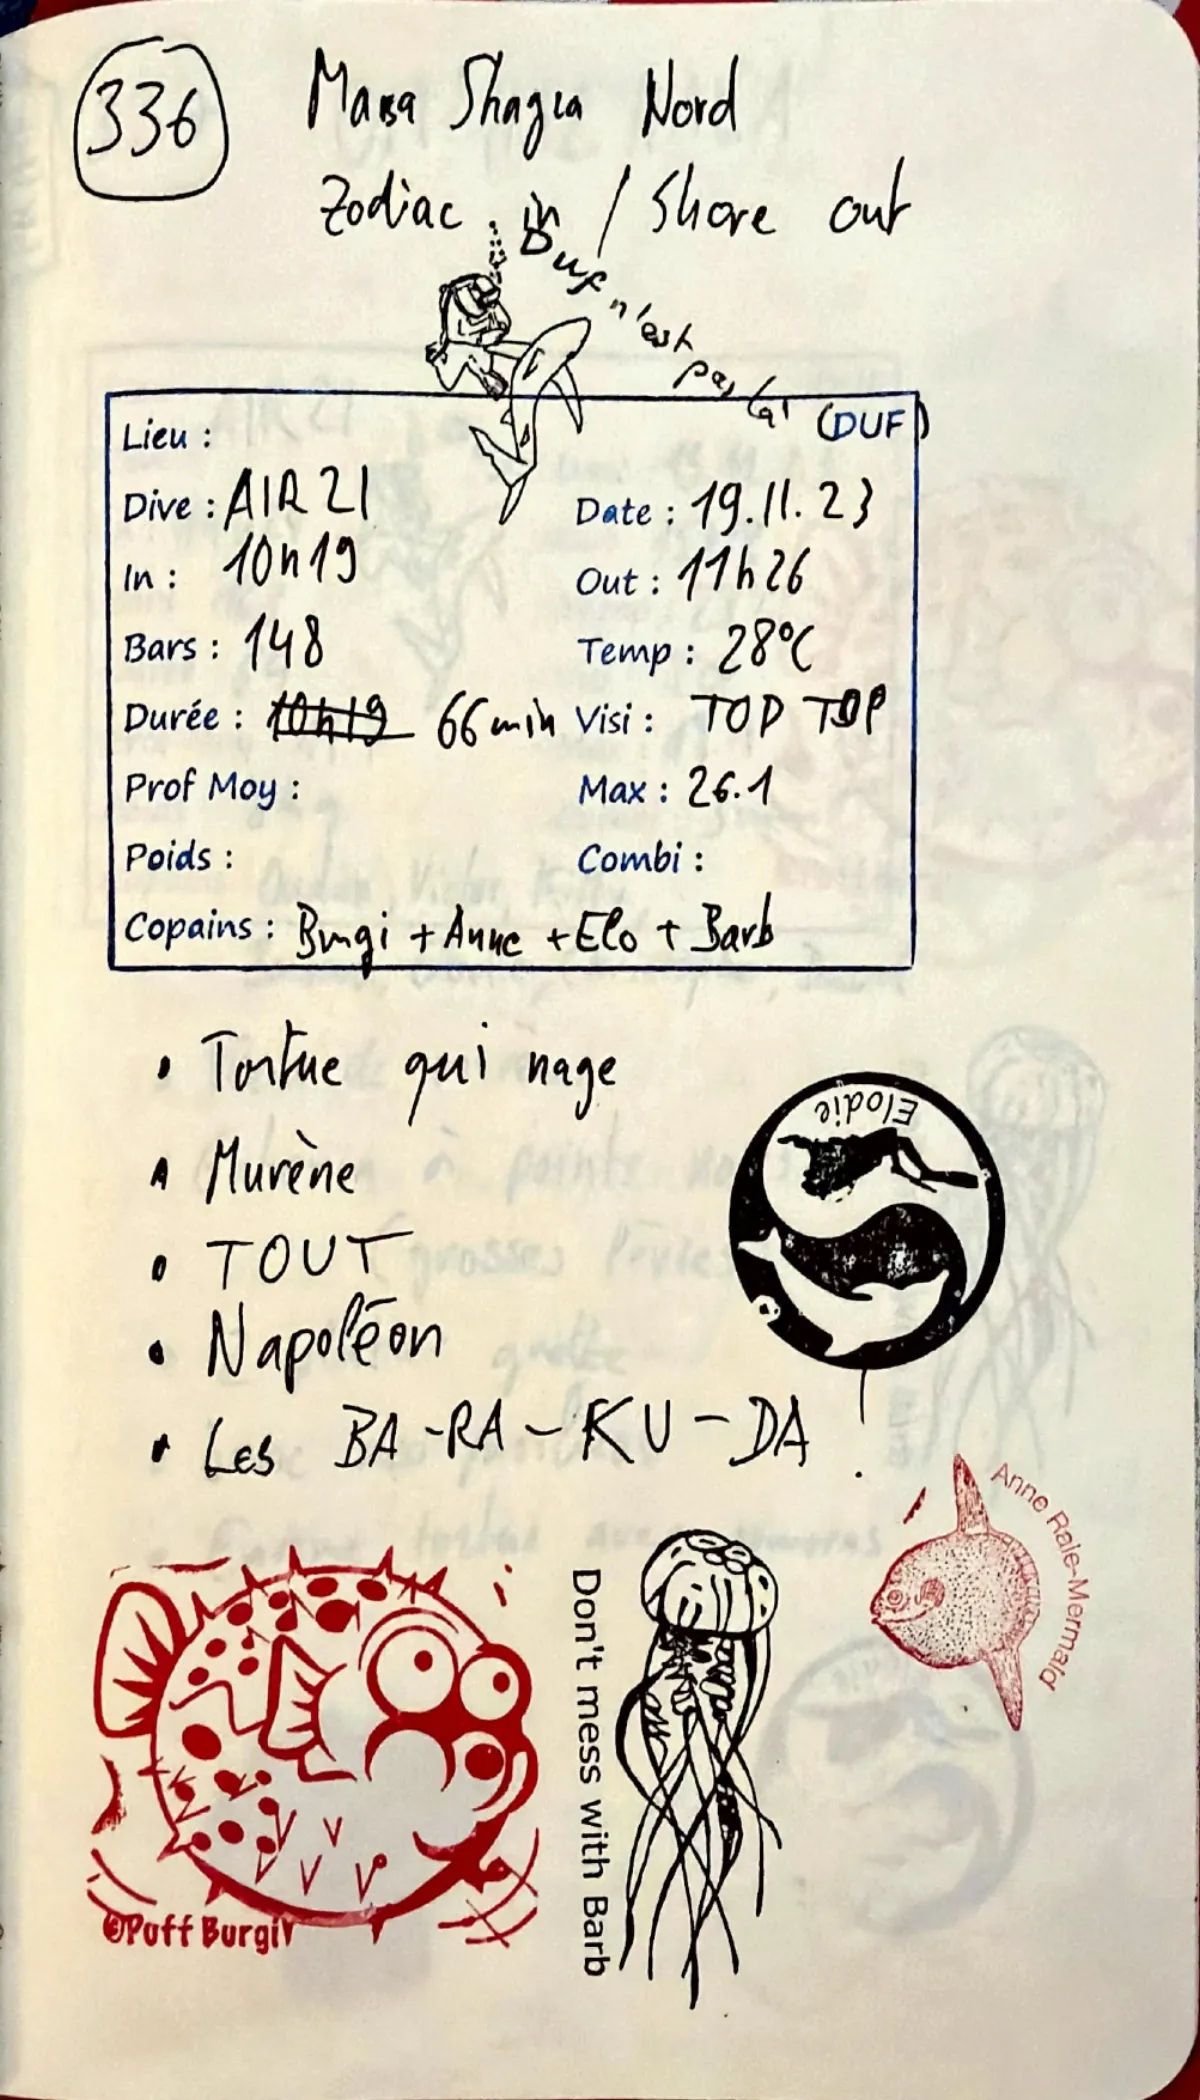 336
Marsa Shagra Nord
Zodiac in / Shore out
Duf n'est pas là! (DUF)
Lieu :
Dive : AIR 21 Date : 19.11.23
In : 10h19 Out : 11h26
Bars : 148 Temp : 28°C
Durée : 10h19 66 min Visi : TOP TOP
Prof Moy : Max : 26.1
Poids : Combi :
Copains : Burgi + Anne + Elo + Barb
• Tortue qui nage
• Murène
• TOUT
• Napoléon
• Les BA-RA-KU-DA !
Elodie
Anne Rale-Mermald
Don't mess with Barb
©Puff Burgi